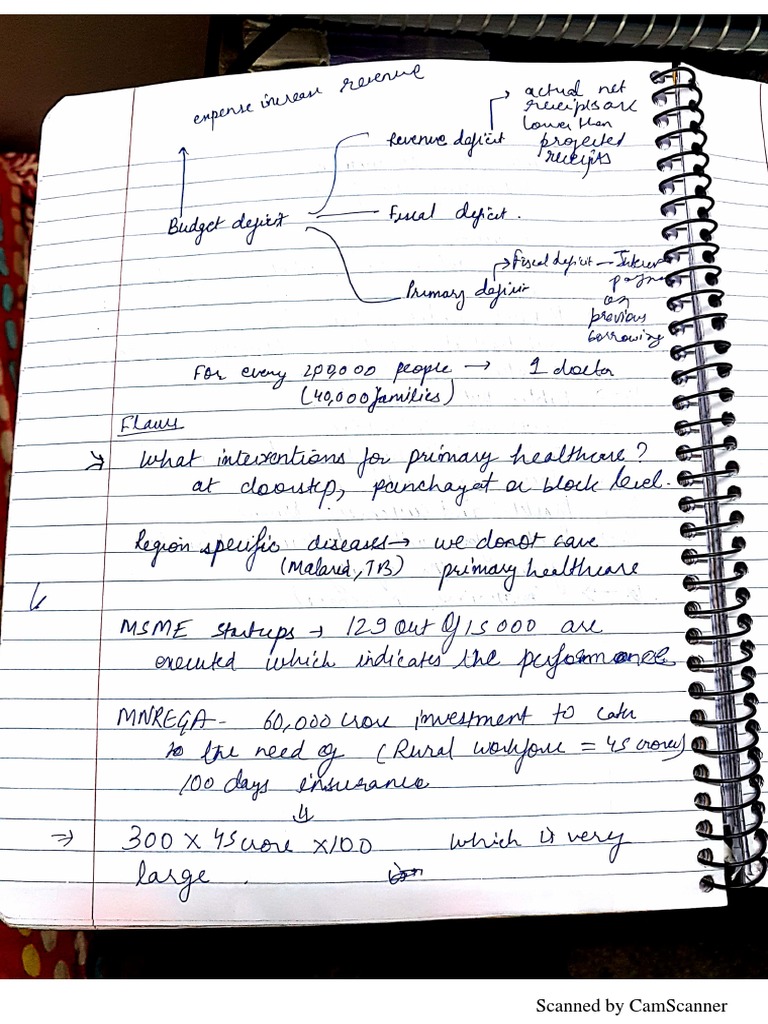 expense increase revenue
actual net
receipts are
lower than
projected
receipts
Revenue deficit
Budget deficit
Fiscal deficit.
Primary deficit
Fiscal deficit -
on
previous
borrowing
For every 200,000 people → 1 doctor
(40,000 families)
Flaws
What interventions for primary healthcare?
at doorstep, panchayat or block level.
Region specific diseases → we donot have
(Malaria, TB) primary healthcare
MSME startups → 129 out of 15000 are
executed which indicates the performance
MNREGA - 60,000 crore investment to cater
to the need of (Rural workforce = 45 crore)
100 days insurance
⇒ 300 x 45 crore x 100 which is very
large.
Scanned by CamScanner